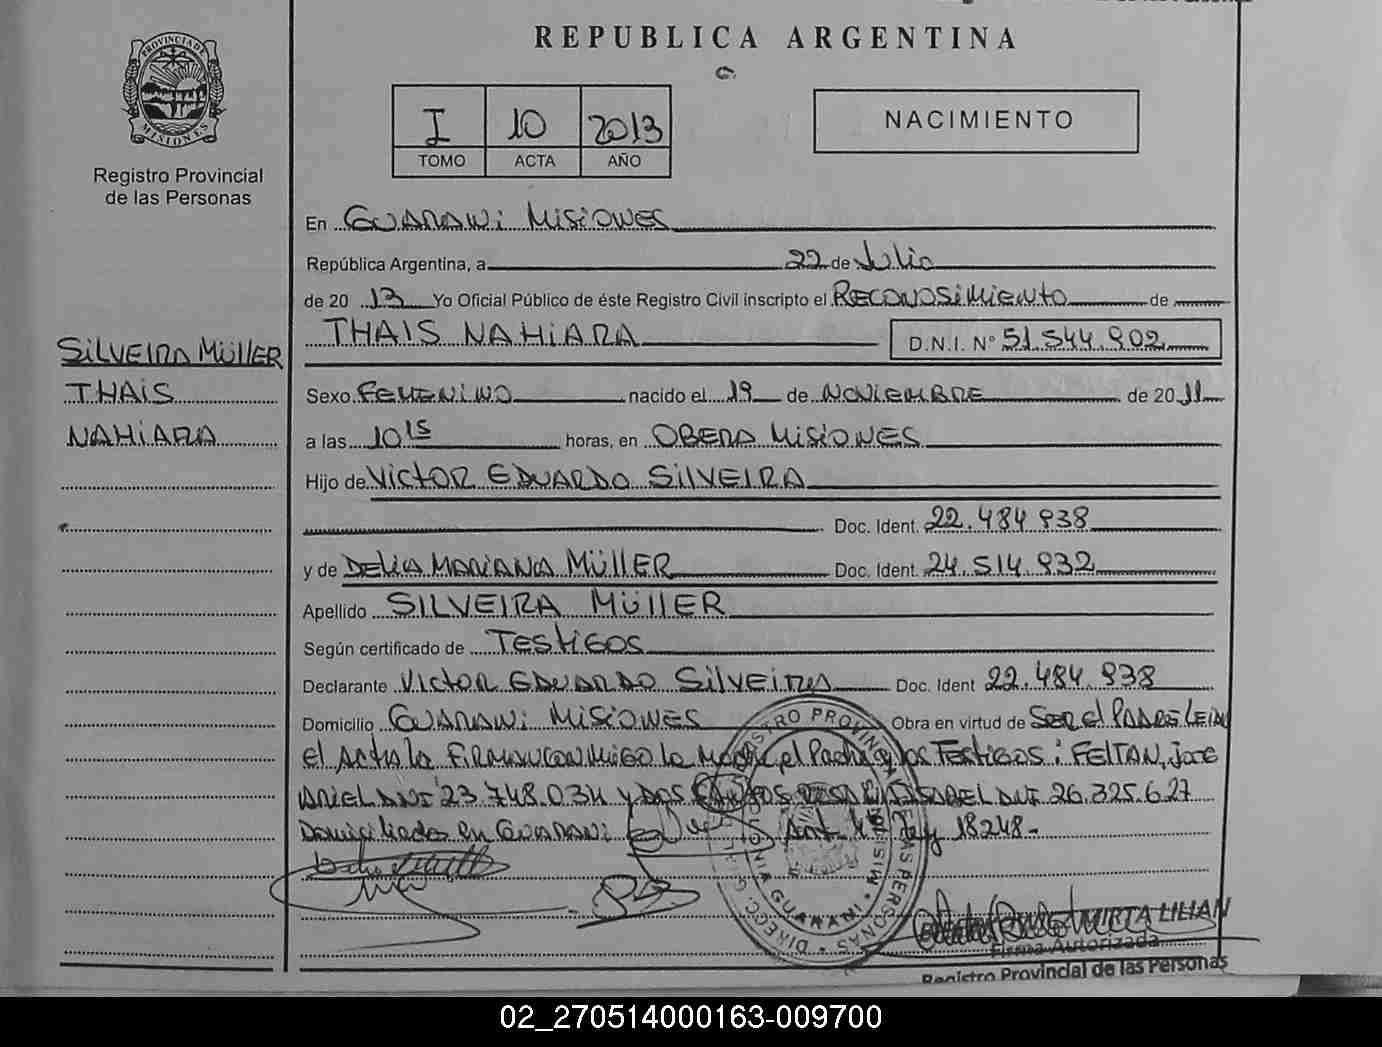 REPUBLICA ARGENTINA
PROVINCIA DE
MISIONES
Registro Provincial
de las Personas
I 10 2013
TOMO ACTA AÑO
NACIMIENTO
En GUARANI MISIONES
República Argentina, a 22 de Julio
de 20 13 Yo Oficial Público de éste Registro Civil inscripto el RECONOSIMIENTO de
THAIS NAHIARA D.N.I. N° 51.544.902
SILVEIRA MÜLLER
THAIS
NAHIARA
Sexo FEMENINO nacido el 19 de NOVIEMBRE de 20 11
a las 10 15 horas, en OBERA MISIONES
Hijo de VICTOR EDUARDO SILVEIRA
Doc. Ident. 22.484.938
y de DELIA MARIANA MÜLLER Doc. Ident. 24.514.932
Apellido SILVEIRA MÜLLER
Según certificado de TESTIGOS
Declarante VICTOR EDUARDO SILVEIRA Doc. Ident 22.484.938
Domicilio GUARANI MISIONES Obra en virtud de SER el PADRE LEIDA
El Acta la FIRMAN CONMIGO la Madre, el Padre y los TESTIGOS: FELTAN, Jose
ARIEL DNI 23.748.034 y DOS ISABEL DNI 26.325.627
Domiciliados en GUARANI Ley 18248-
MIRTA LILIAN
Firma Autorizada
Registro Provincial de las Personas
02_270514000163-009700